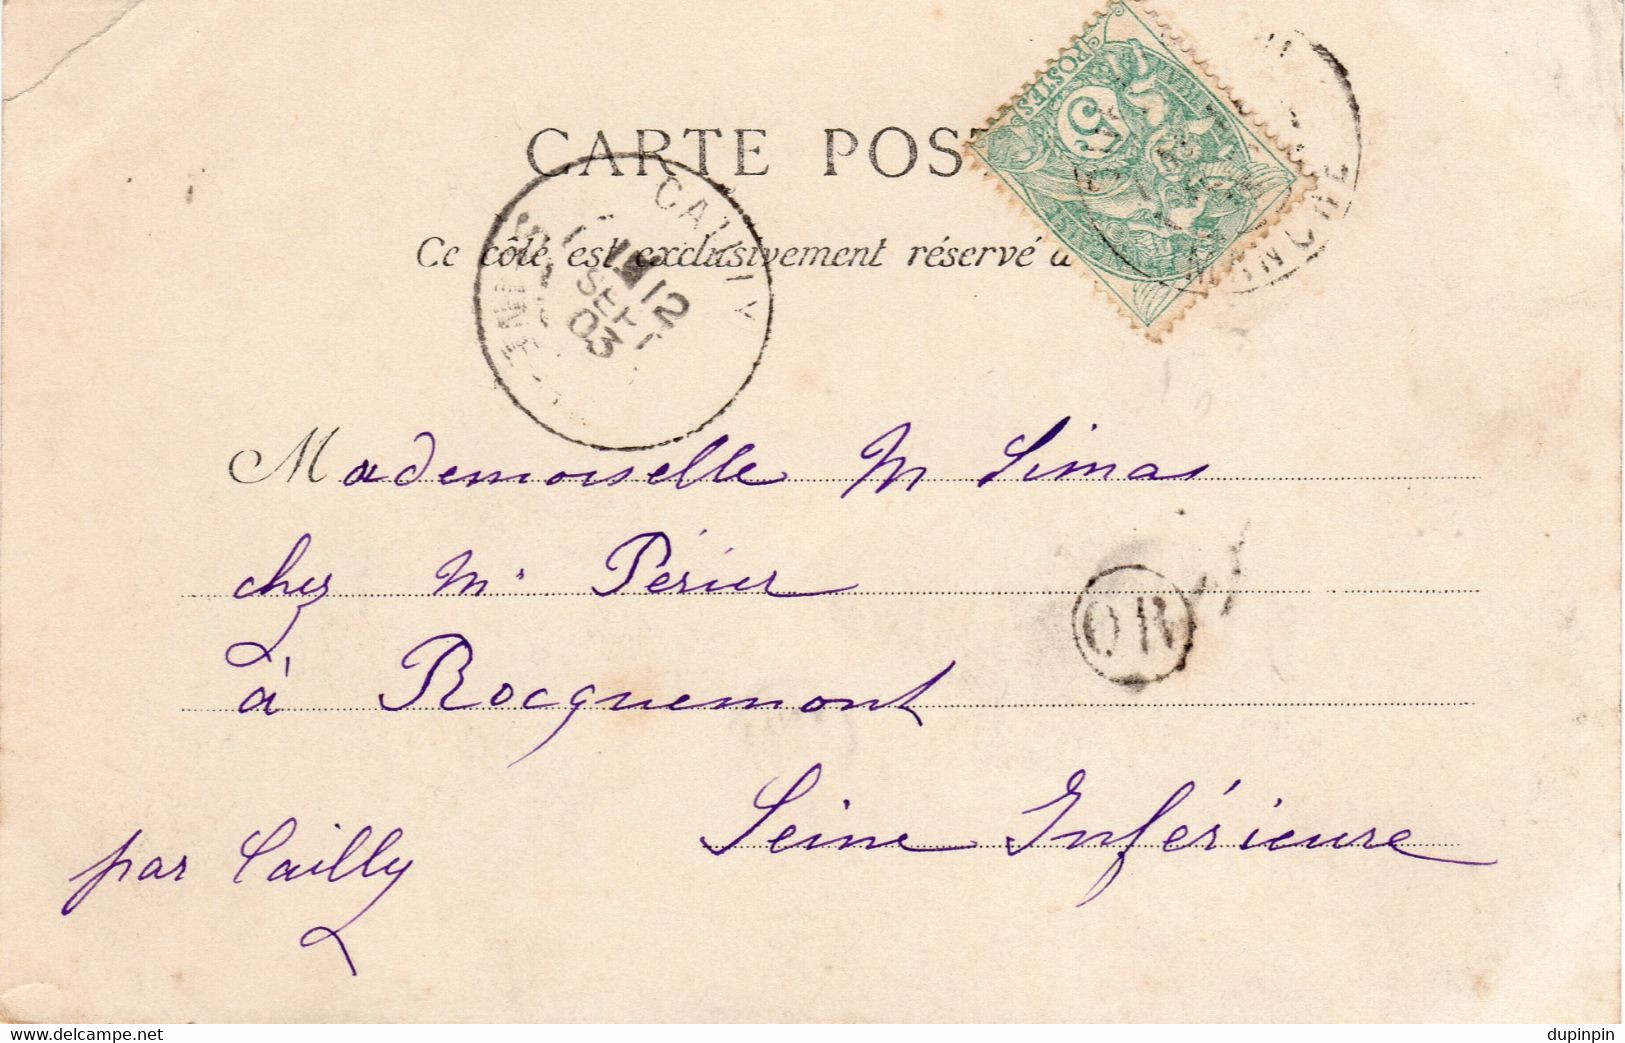 CARTE POST
Ce côté est exclusivement réservé à
POSTES
5
CAILLY
SEINE
12
SEPT
03
Mademoiselle M Simas
chez M. Périer
OR
à Rocquemont
Seine Inférieure
par Cailly
www.delcampe.net
dupinpin